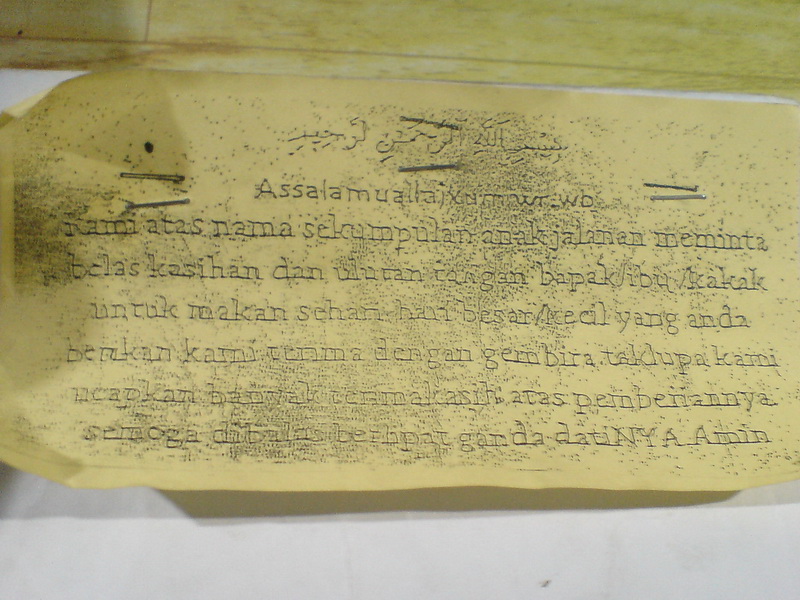 بِسْمِ اللهِ الرَّحْمٰنِ الرَّحِيْمِ
Assalamuallaixum wr.wb
Kami atas nama sekumpulan anak jalanan meminta
belas kasihan dan uluran tangan bapak/ibu/kakak
untuk makan sehari-hari besar/kecil yang anda
berikan kami terima dengan gembira taklupa kami
ucapkan banyak terimakasih atas pemberiannya
semoga dibalas berlipat ganda dariNYA Amin